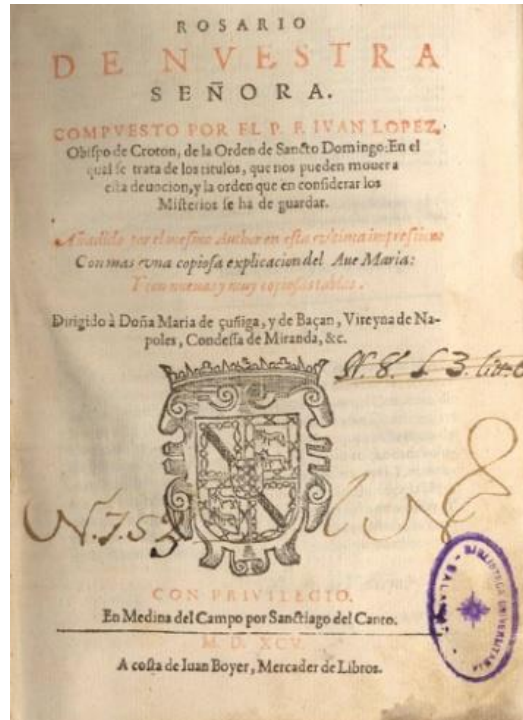 ROSARIO
DE NVESTRA
SEÑORA.
COMPVESTO POR EL P. F. IVAN LOPEZ,
Obispo de Croton, de la Orden de Sancto Domingo: En el
qual se trata de los titulos, que nos pueden mouer a
esta deuocion, y la orden que en considerar los
Misterios se ha de guardar.
Añadido por el mesmo Author en esta vltima impresion
Con mas vna copiosa explicacion del Aue Maria:
Y con nueuas y muy copiosas tablas.
Dirigido à Doña Maria de çuñiga, y de Baçan, Vireyna de Na-
poles, Condessa de Miranda, &c.
N. 8. L 3.
N. 7. 53
CON PRIVILEGIO.
En Medina del Campo por Sanctiago del Canto.
M. D. XCV.
A costa de Iuan Boyer, Mercader de Libros.
BIBLIOTECA UNIVERSITARIA